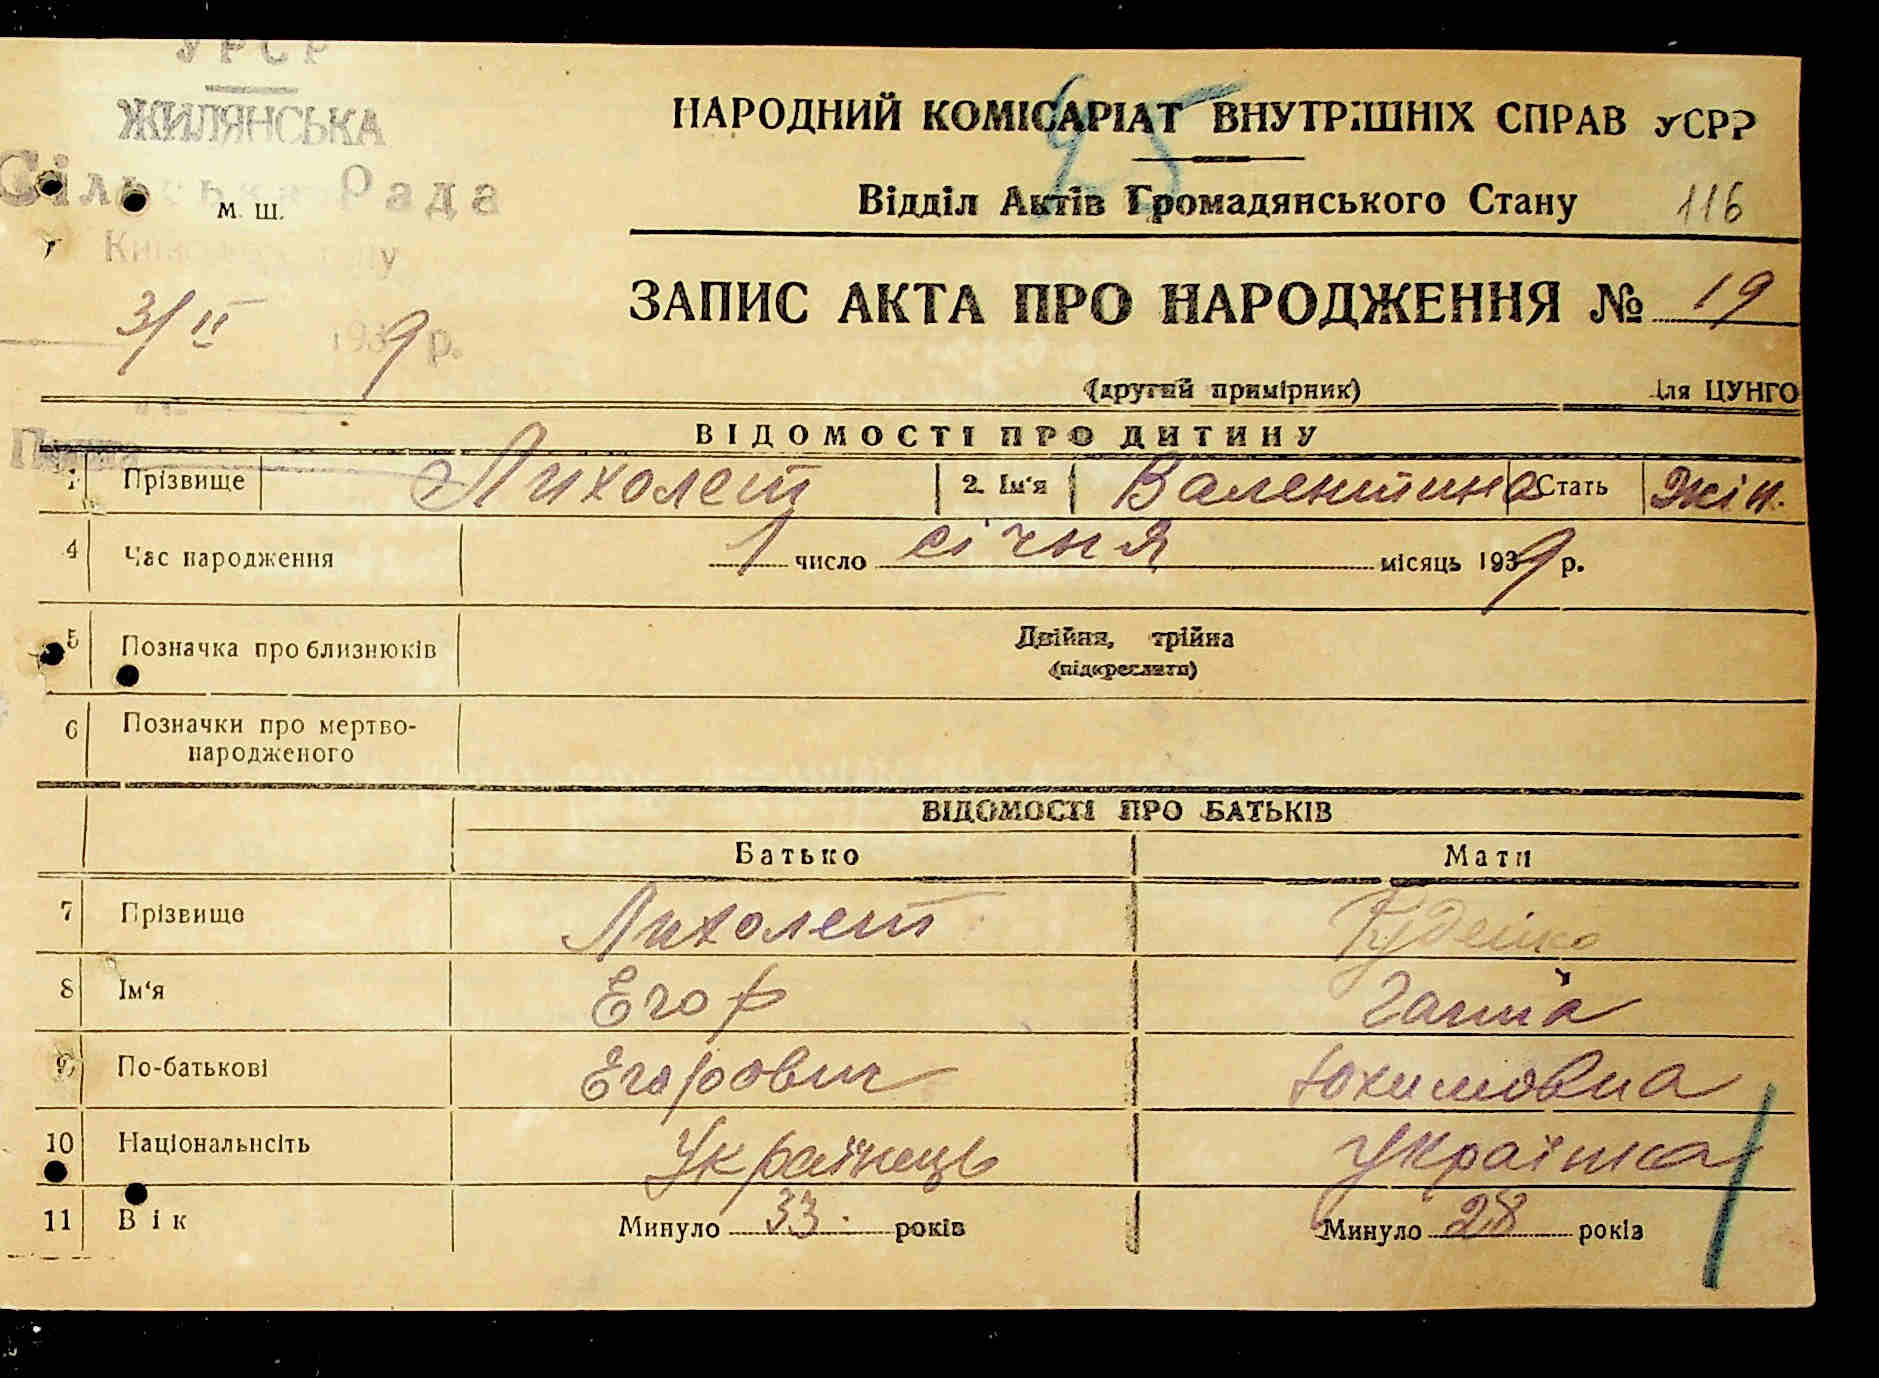 УРСР
ЖИЛЯНСЬКА
Сільська Рада
М. Ш.
3/II 1939 р.
25
НАРОДНИЙ КОМІСАРІАТ ВНУТРІШНІХ СПРАВ УСРР
Відділ Актів Громадянського Стану 116
ЗАПИС АКТА ПРО НАРОДЖЕННЯ № 19
(другий примірник) Для ЦУНГО
ВІДОМОСТІ ПРО ДИТИНУ
1 Прізвище Лихолет 2. Ім'я Валентина Стать Жін.
4 Час народження 1 число січня місяць 1939 р.
5 Позначка про близнюків Двійня, трійна
(підкреслити)
6 Позначки про мертво-
народженого
ВІДОМОСТІ ПРО БАТЬКІВ
Батько Мати
7 Прізвище Лихолет
8 Ім'я Егор Ганна
9 По-батькові Егорович Юхимовна
10 Національність Українець Українка
11 Вік Минуло 33 років Минуло 28 років